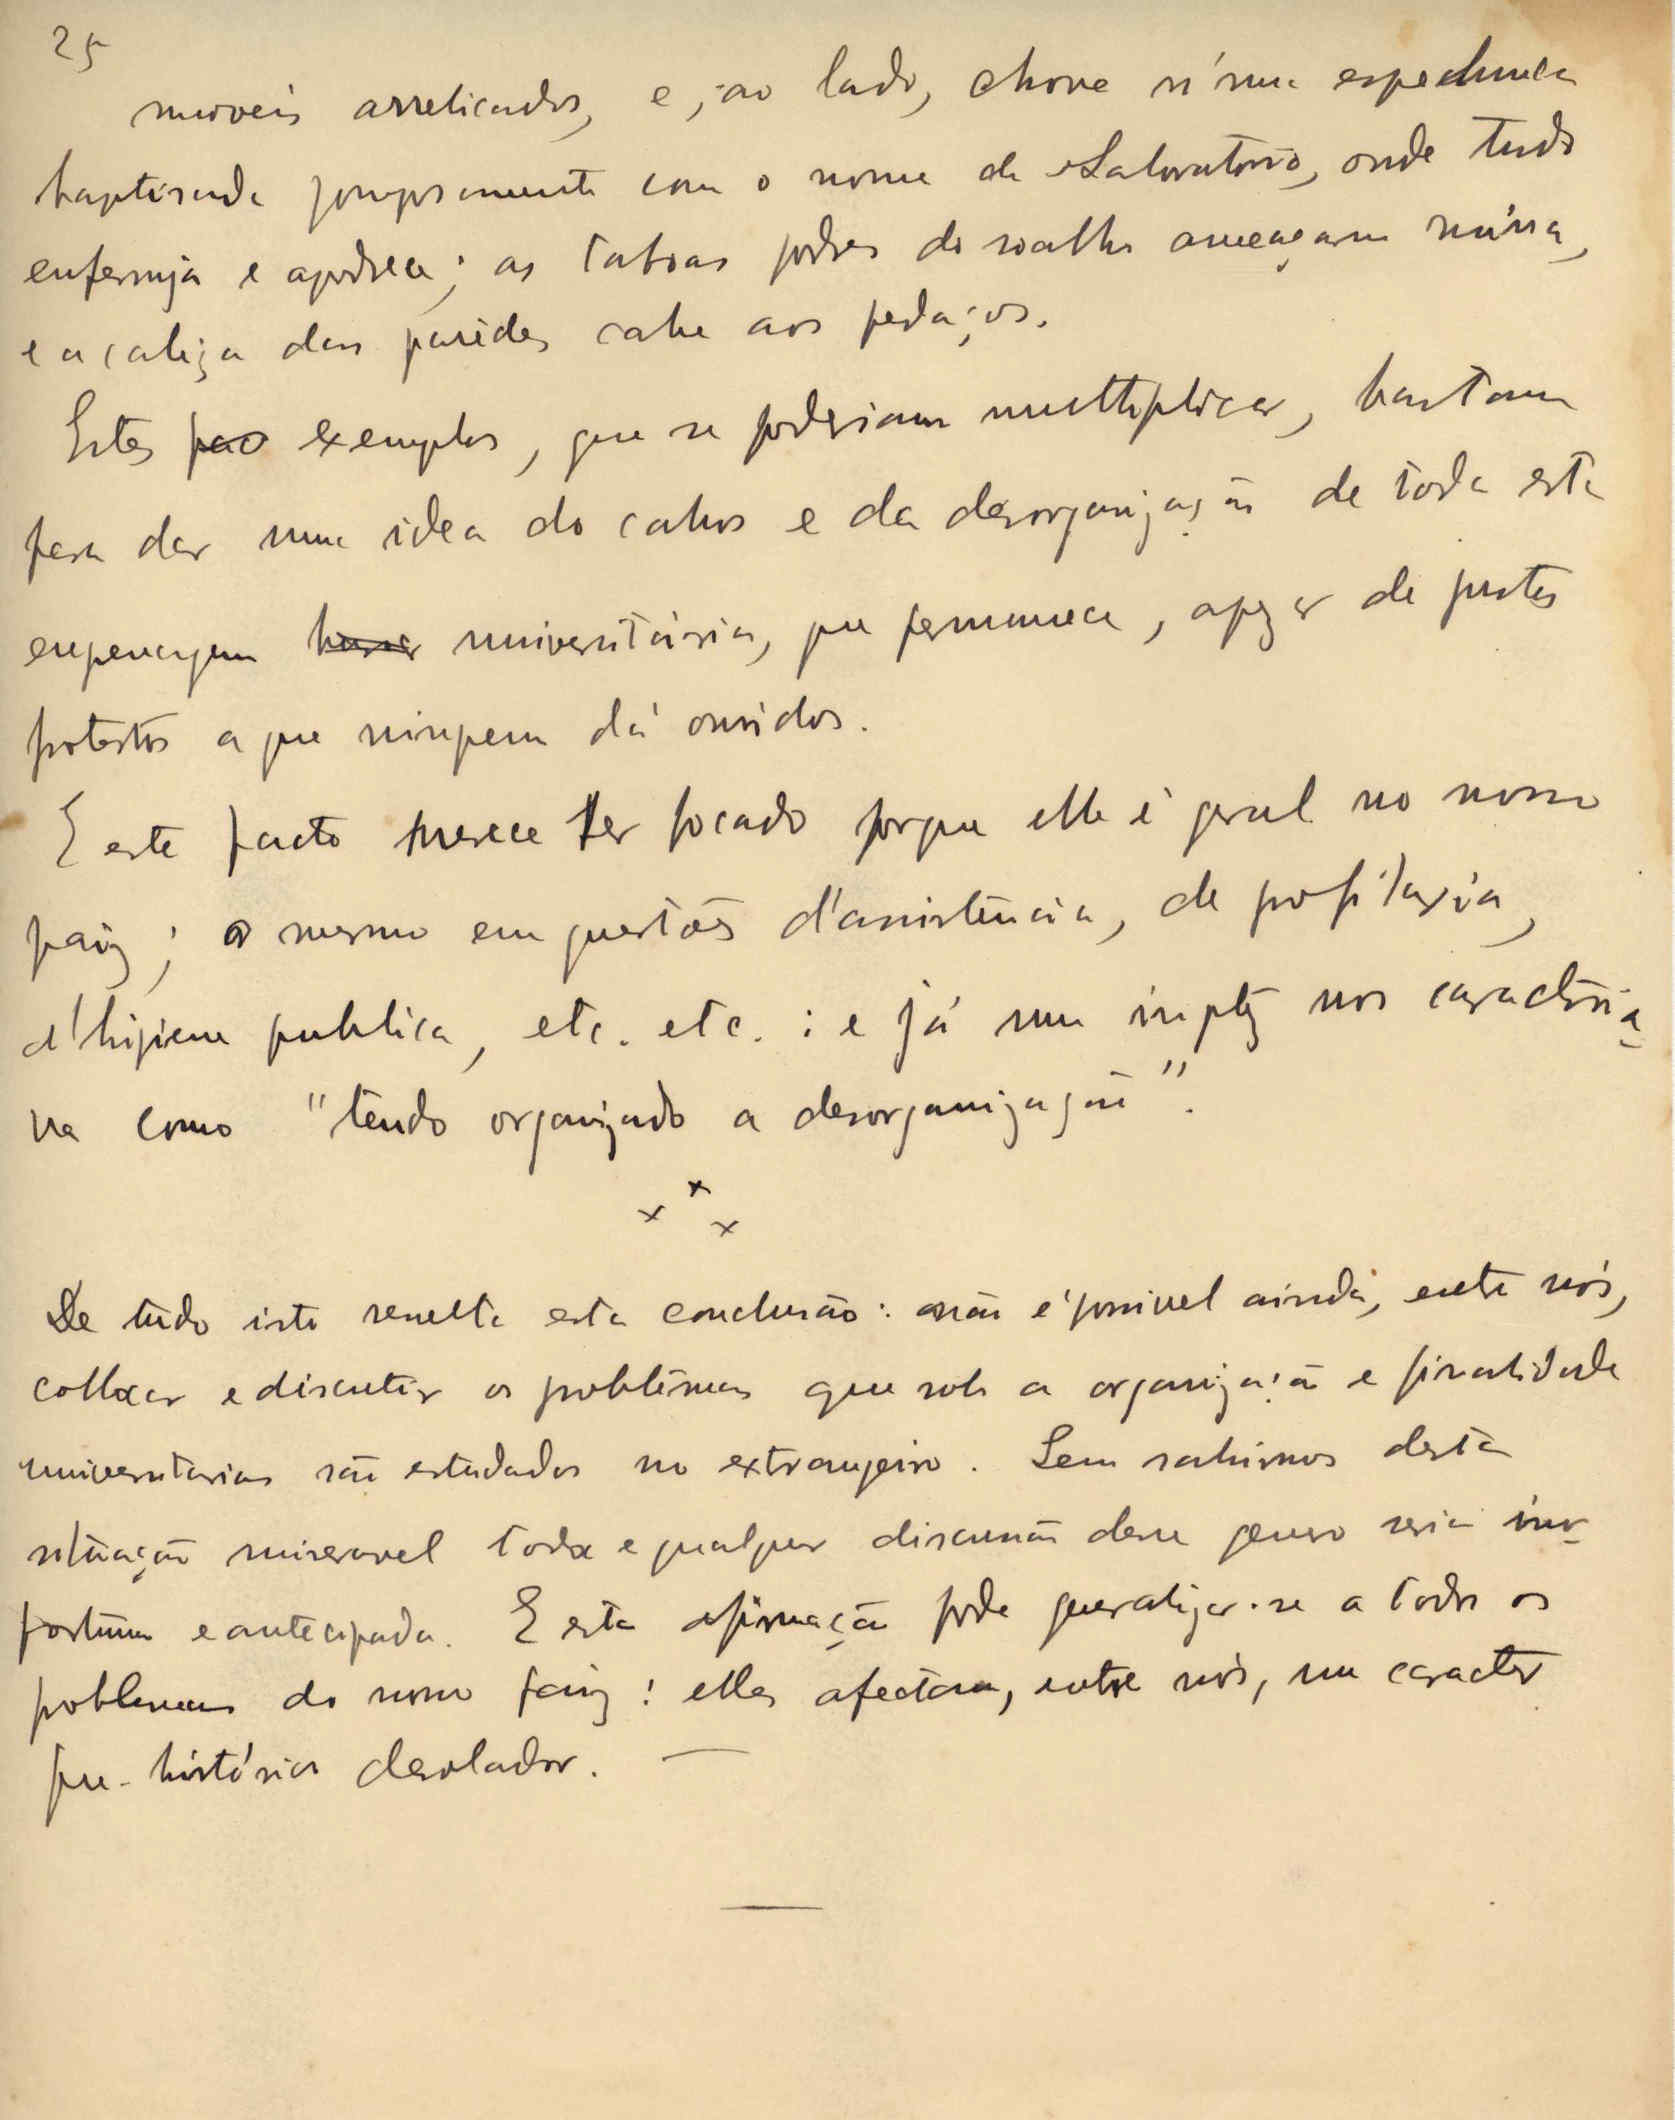 25
moveis arrebicados, e, ao lado, chove n'uma espelunca
baptisada pomposamente com o nome de Laboratorio, onde tudo
enferruja e apodrece; as taboas podres do soalho ameaçam ruína,
e a caliça das paredes cahe aos pedaços.
Estes exemplos, que se poderiam multiplicar, bastam
para dar uma idea do cahos e da desorganização de toda esta
engrenagem universitária, que permanece, apezar de justos
protestos a que ninguem dá ouvidos.
E este facto merece ser focado porque elle é geral no nosso
paiz; o mesmo em questões d'assistência, de profilaxia,
d'higiene publica, etc. etc. : e já um inglez nos caracterisa-
va como "tendo organizado a desorganização".
x x x
De tudo isto resulta esta conclusão: não é possivel ainda, entre nós,
collocar e discutir os problêmas que sob a organização e finalidade
universitarias são estudados no extrangeiro. Sem sahirmos desta
situação miseravel toda e qualquer discussão desse genero seria ino-
portuna e antecipada. E esta afirmação pode generalizar-se a todos os
problemas do nosso paiz: elles afectam, entre nós, um caracter
pre-histórico desolador. —